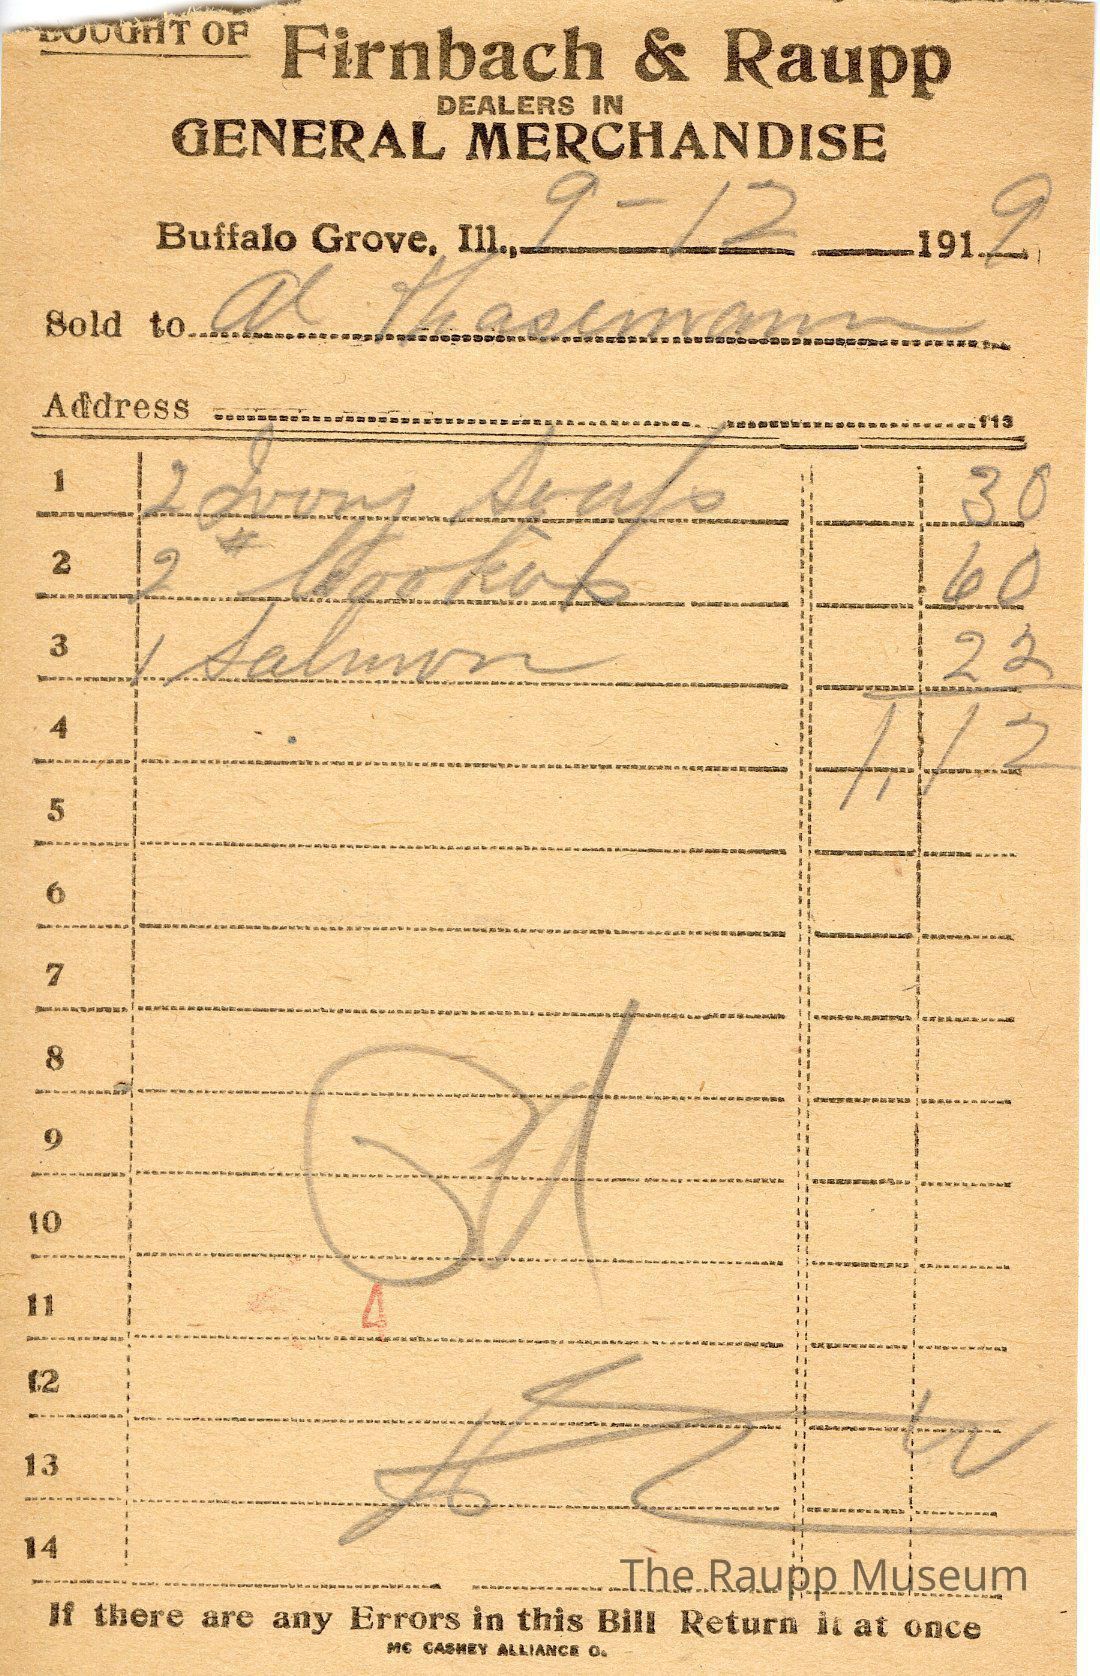 BOUGHT OF Firnbach & Raupp
DEALERS IN
GENERAL MERCHANDISE
Buffalo Grove, Ill., 9-12 1919
Sold to Al Thasemann
Address 113
1 2 Ivory Soaps 30
2 2 # Cookies 60
3 1 Salmon 22
4 1.12
5
6
7
8
9
10
11
12
13
14
The Raupp Museum
If there are any Errors in this Bill Return it at once
MC CASKEY ALLIANCE O.